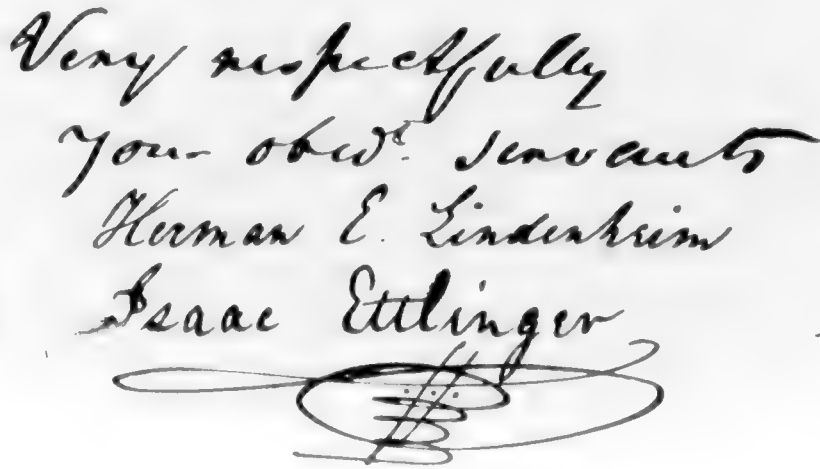 Very respectfully
your obedt. servants
Herman E. Lindenheim
Isaac Ettlinger